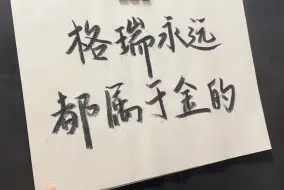 格瑞永远
都属于金的